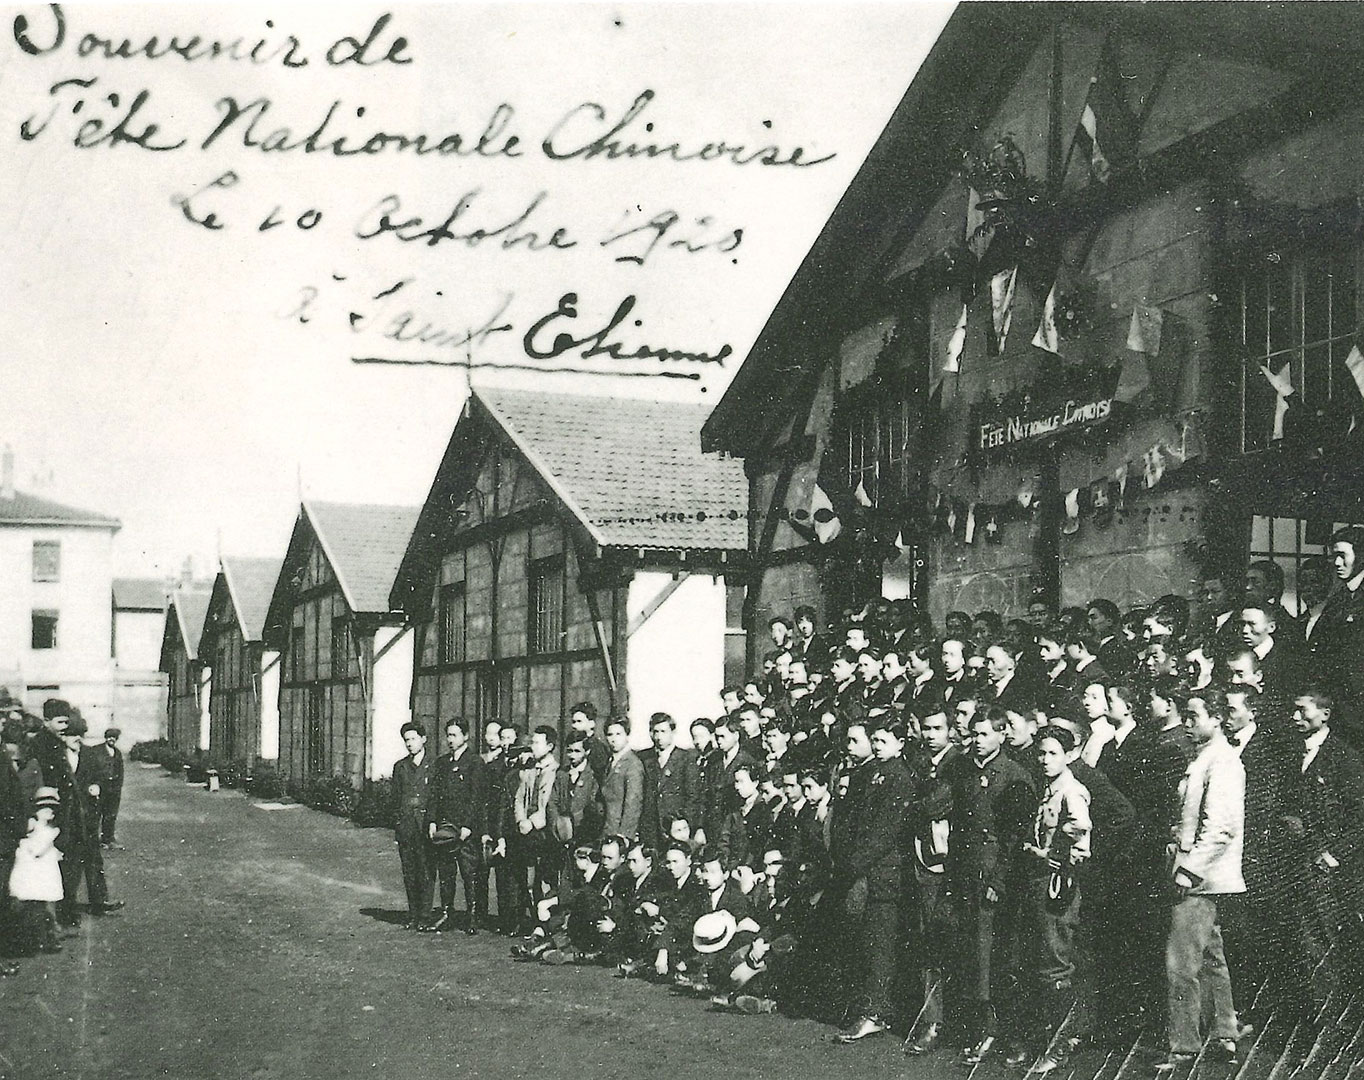 Souvenir de
Fête Nationale Chinoise
Le 10 Octobre 1920.
à Saint Etienne.
FÊTE NATIONALE CHINOISE